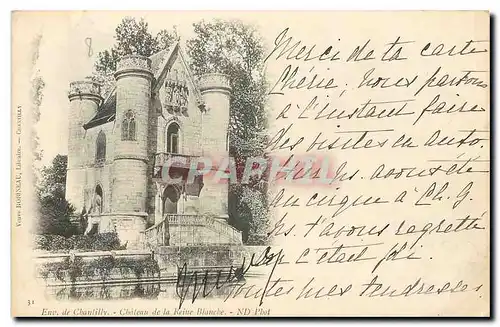 Merci de ta carte
Chérie, nous partons
à l'instant faire
des visites en auto.
avons été
au cirque à Ch.
t'avons regretté
c'était
toutes mes tendresses
CPARAMA
Veuve ROBINEAU, Libraire. - CHANTILLY
31
Env. de Chantilly. - Château de la Reine Blanche. - ND Phot